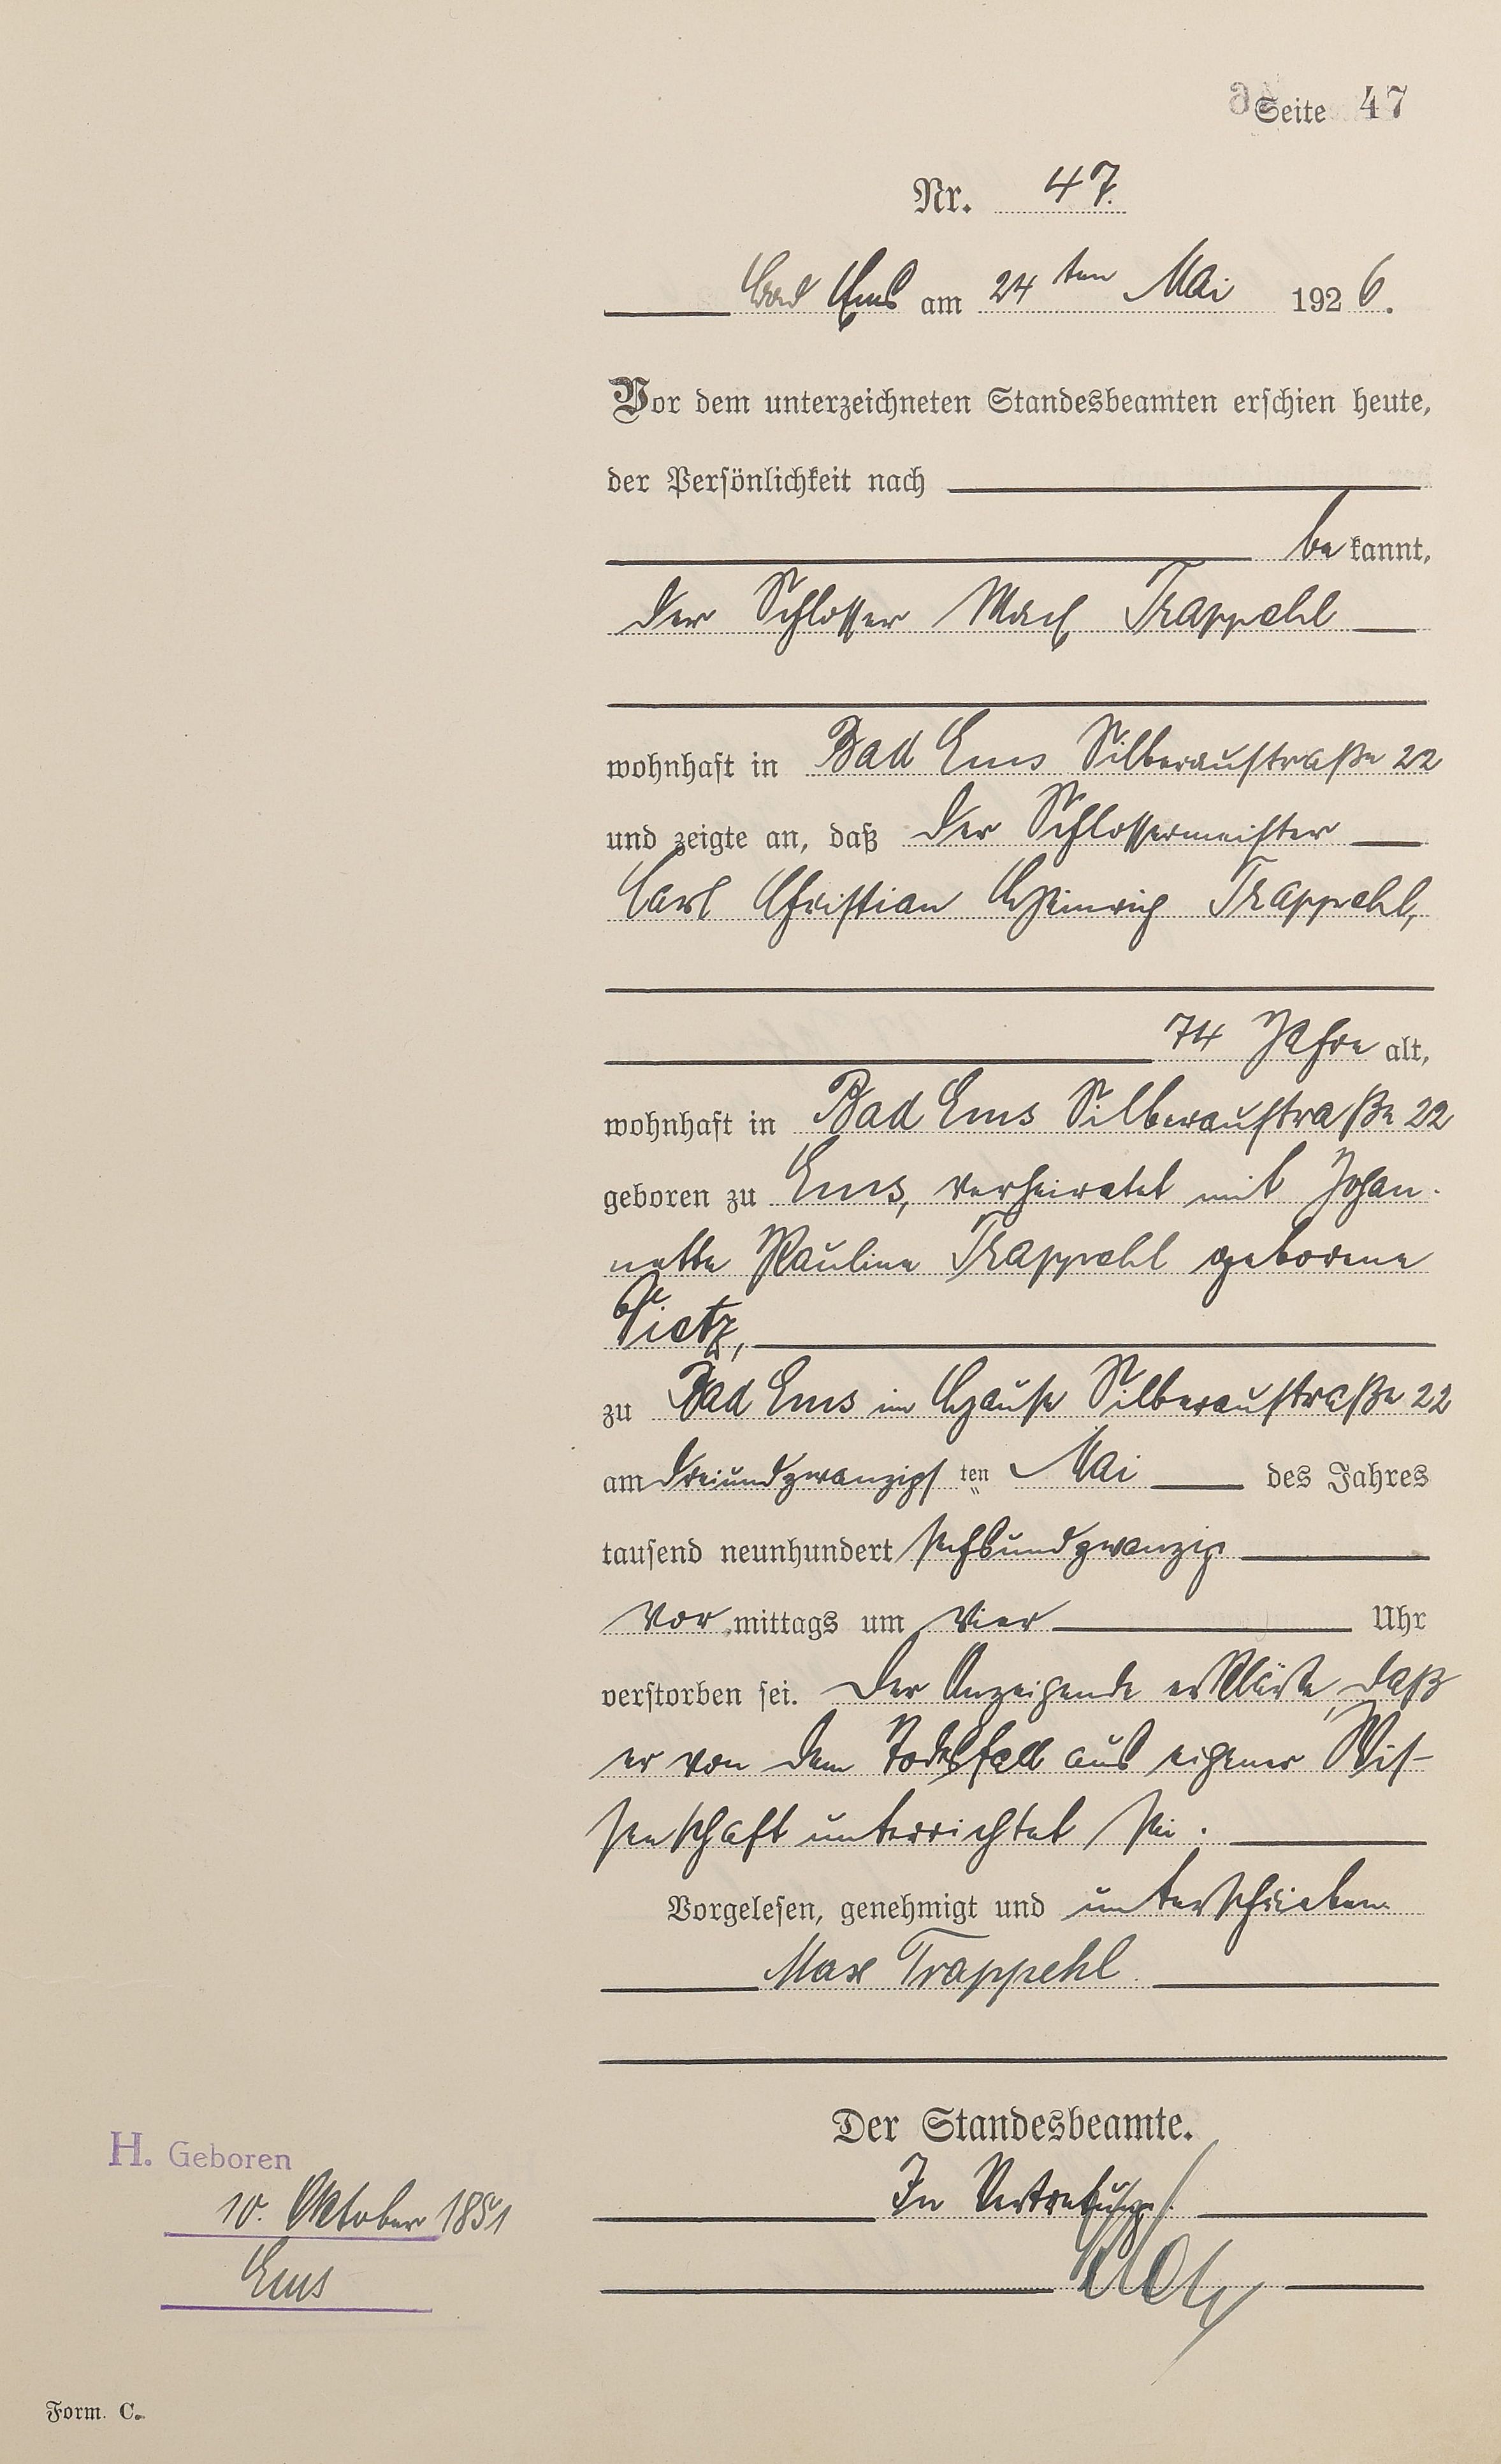 Seite 47
Nr. 47.
Bad Ems am 24ten Mai 1926.
Vor dem unterzeichneten Standesbeamten erschien heute,
der Persönlichkeit nach
be kannt,
der Schlosser Max Trappehl
wohnhaft in Bad Ems Silberaustraße 22
und zeigte an, daß der Schlossermeister
Carl Christian Heinrich Trappehl,
74 Jahre alt,
wohnhaft in Bad Ems Silberaustraße 22
geboren zu Ems, verheiratet mit Johan-
nette Pauline Trappehl geborene
zu Bad Ems im Hause Silberaustraße 22
am dreiundzwanzigsten Mai des Jahres
tausend neunhundert sechsundzwanzig
Vor mittags um vier Uhr
verstorben sei. Der Anzeigende erklärte, daß
er von dem Todesfall aus eigener Wis-
senschaft unterrichtet sei.
Vorgelesen, genehmigt und unterschrieben
Max Trappehl
Der Standesbeamte.
In Vertretung.
H. Geboren
10. Oktober 1851
Ems
Form. C.